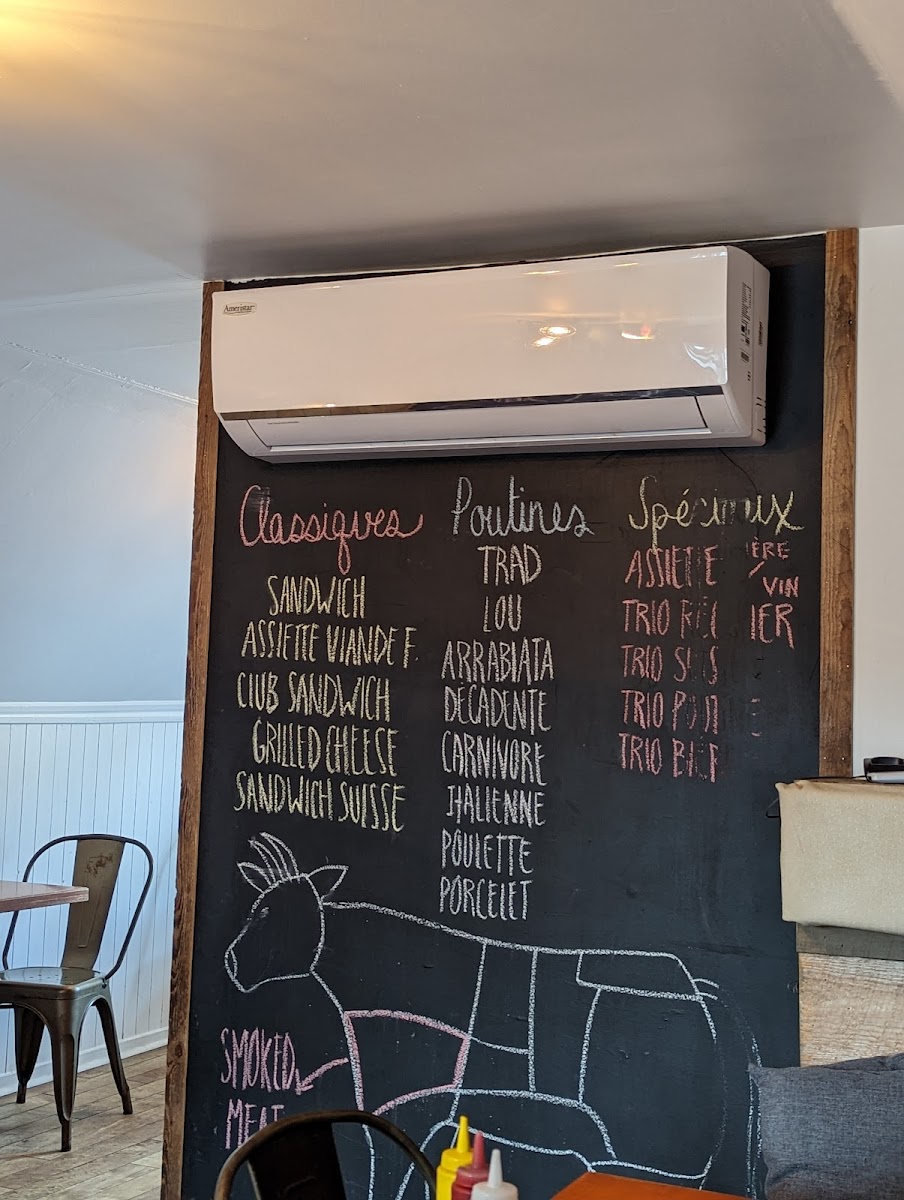 Ameristar
Classiques
SANDWICH
ASSIETTE VIANDE F.
CLUB SANDWICH
GRILLED CHEESE
SANDWICH SUISSE
Poutines
TRAD
LOU
ARRABIATA
DECADENTE
CARNIVORE
ITALIENNE
POULETTE
PORCELET
Spéciaux
ASSIETTE
TRIO
TRIO
TRIO
TRIO
SMOKED
MEAT